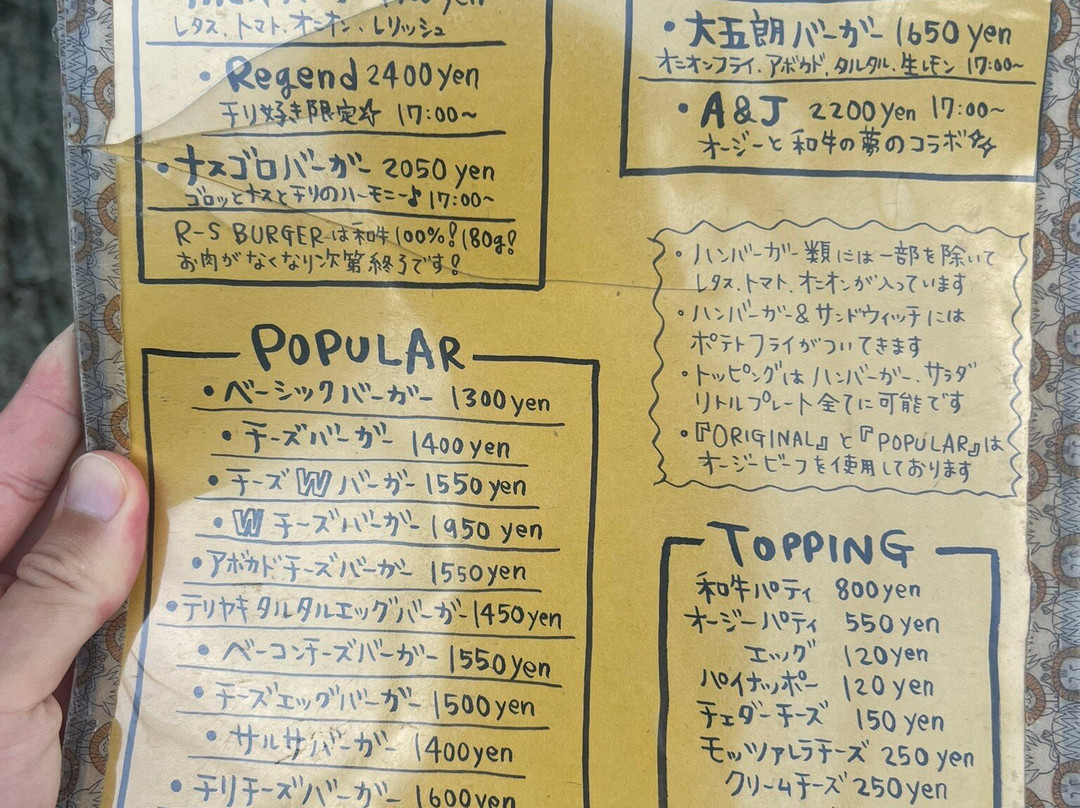 レタス、トマト、オニオン、レリッシュ
・Regend 2400yen
チリ好き限定☆ 17:00~
・ナスゴロバーガー 2050 yen
ゴロッとナスとチリのハーモニー♪ 17:00~
R-S BURGERは和牛100%!180g!
お肉がなくなり次第終了です!
・大五朗バーガー 1650 yen
オニオンフライ、アボカド、タルタル、生レモン 17:00~
・A&J 2200yen 17:00~
オージーと和牛の夢のコラボ
・ハンバーガー類には一部を除いて
レタス、トマト、オニオンが入っています
・ハンバーガー&サンドウィッチには
ポテトフライがついてきます
・トッピングはハンバーガー、サラダ
リトルプレート全てに可能です
・『ORIGINAL』と『POPULAR』は
オージービーフを使用しております
POPULAR
・ベーシックバーガー 1300yen
・チーズバーガー 1400yen
・チーズWバーガー 1550yen
・Wチーズバーガー 1950 yen
・アボカドチーズバーガー 1550yen
・テリヤキタルタルエッグバーガー 1450yen
・ベーコンチーズバーガー 1550yen
・チーズエッグバーガー 1500yen
・サルサバーガー 1400yen
・チリチーズバーガー 1600yen
TOPPING
和牛パティ 800yen
オージーパティ 550yen
エッグ 120yen
パイナッポー 120 yen
チェダーチーズ 150yen
モッツァレラチーズ 250yen
クリームチーズ 250yen